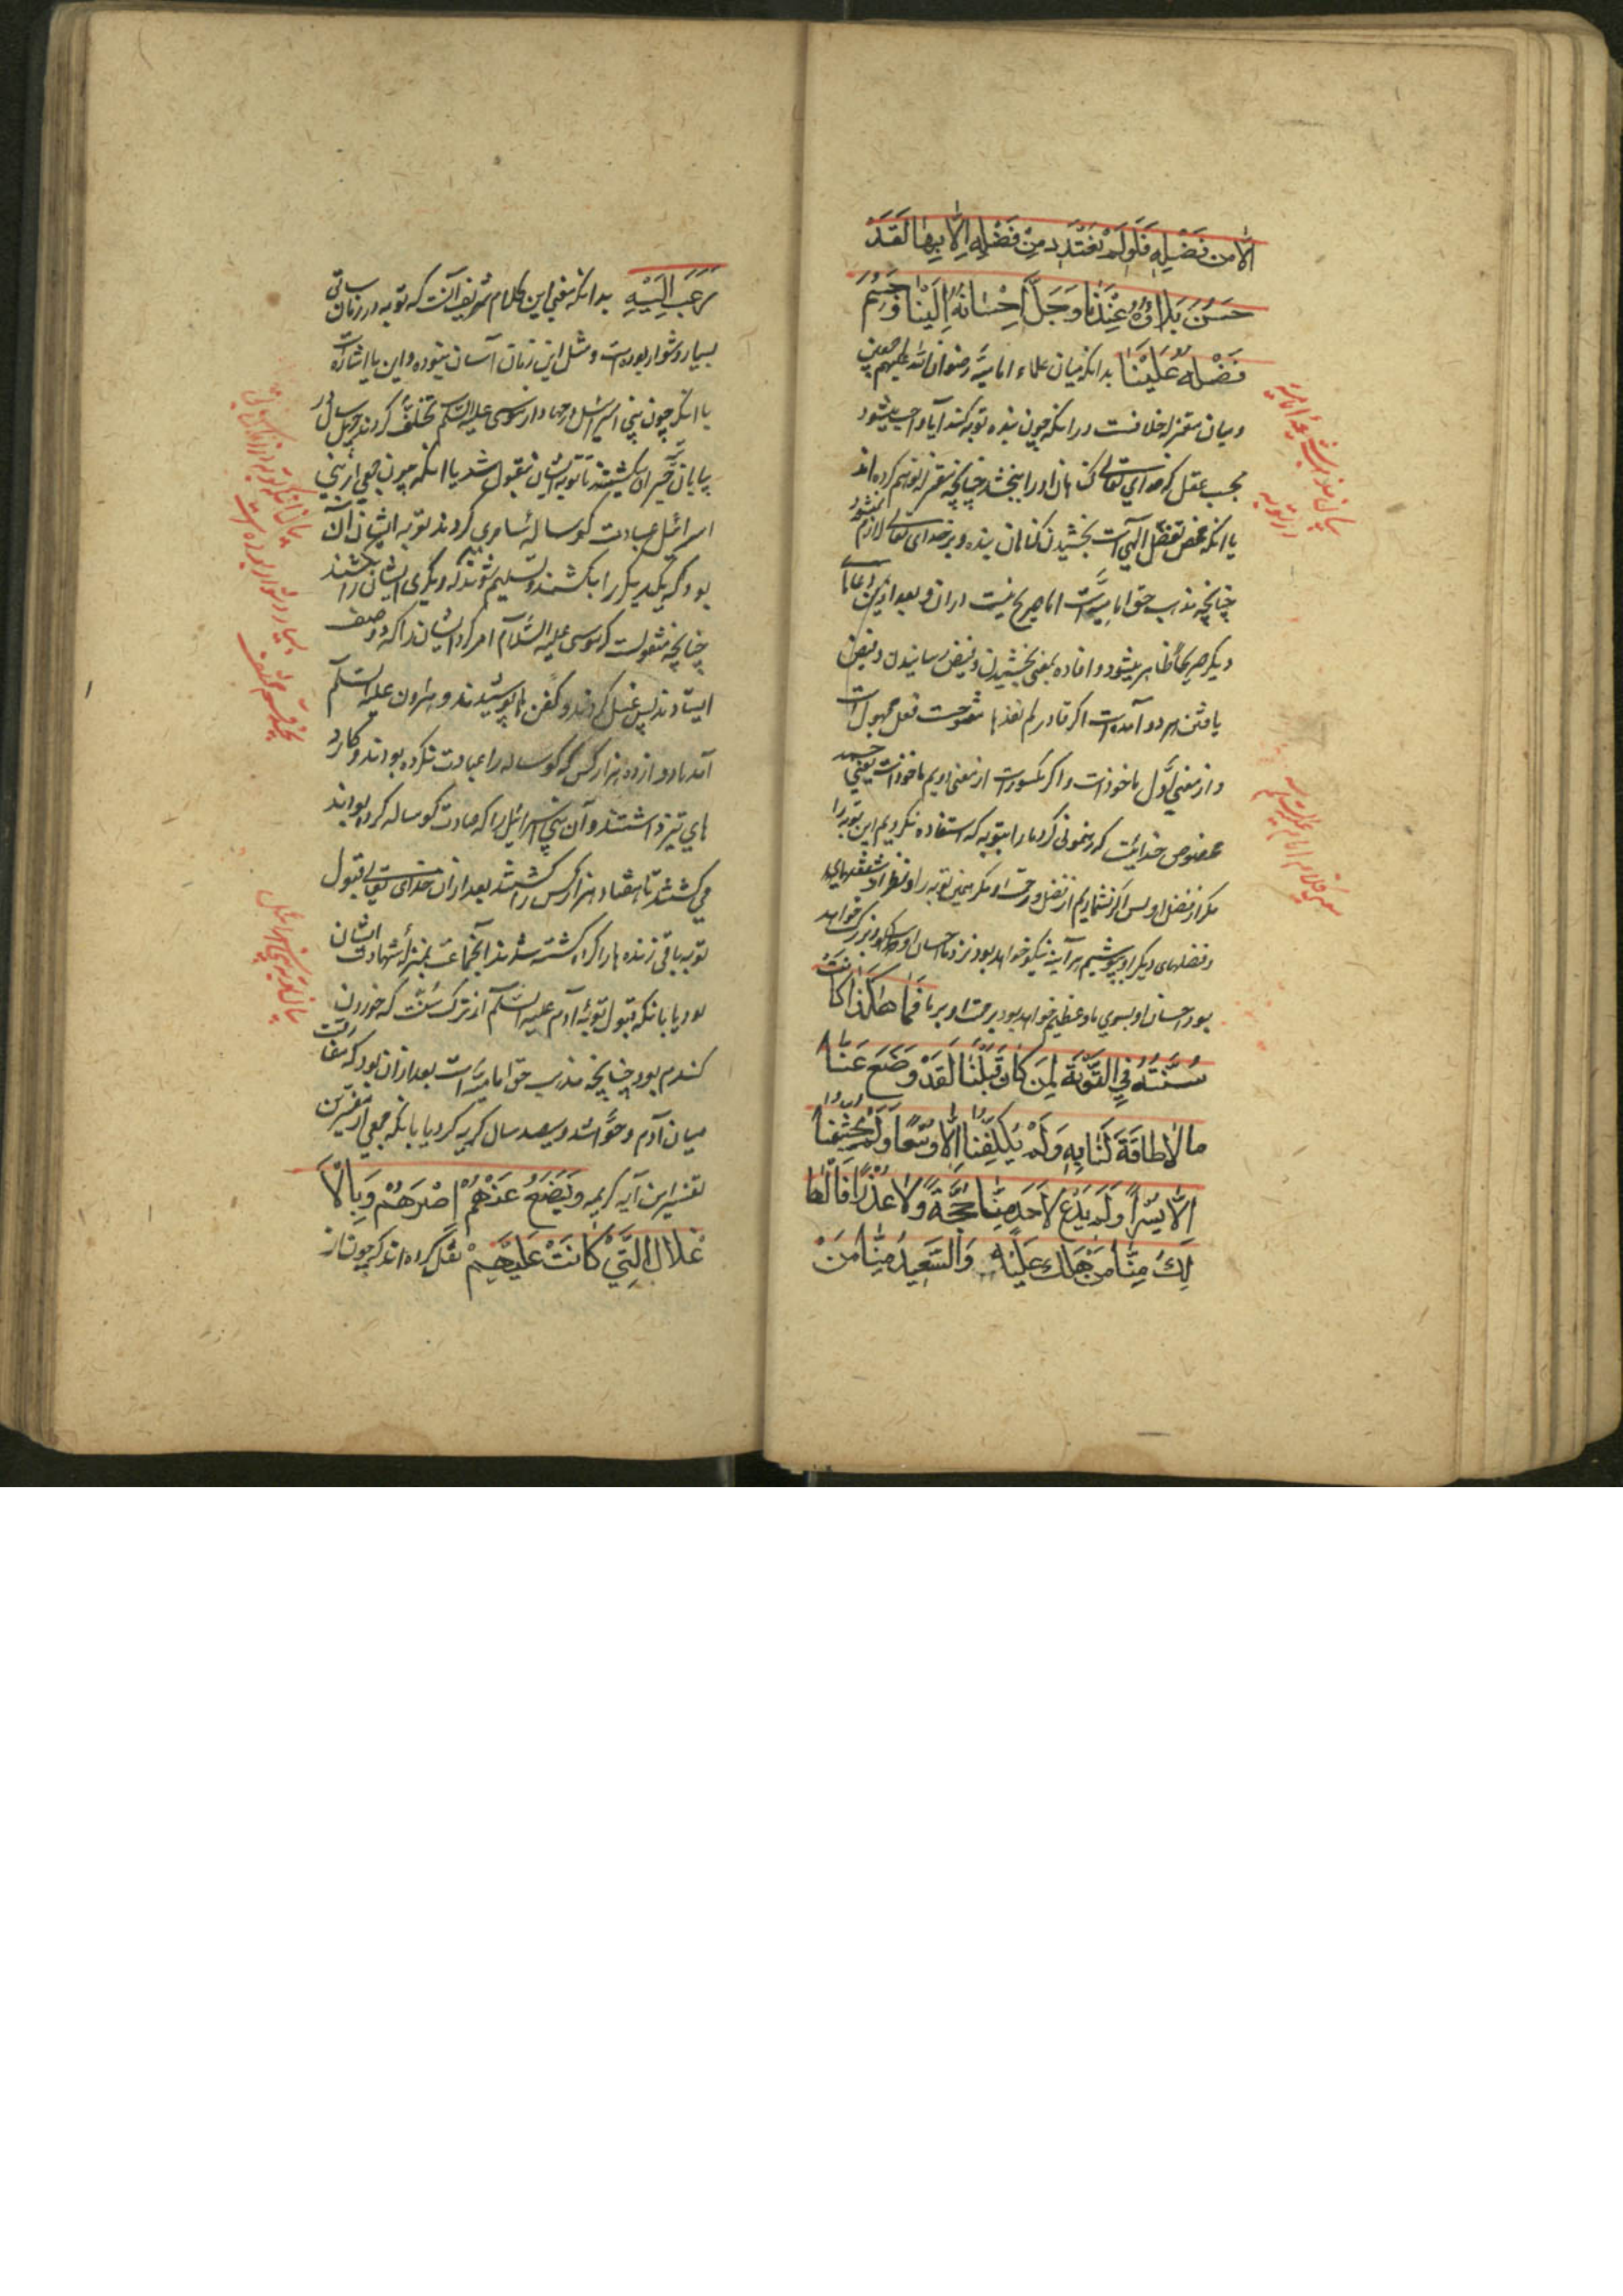 الّا من فَضْلِهِ فَلَو لَمْ نَعْتَدِدْ مِنْ فَضْلِهِ اِلّا بِها لَقَدْ
حَسُنَ بَلاؤُهُ عِنْدَنا وَجَلَّ اِحْسانُهُ اِلَيْنا وَجَسُمَ
فَضْلُهُ عَلَيْنا بدانکه میان علماء امامیه رضوان الله علیهم اجمعین
و میان معتزله خلافست در انکه چون بنده توبه کند آیا واجب میشود
بحسب عقل که خدای تعالی کناهان او را ببخشد چنانچه معتزله توهم کرده اند
یا انکه محض تفضل الهی است بخشیدن کناهان بنده و بر خدای تعالی لازم نمیشود
چنانچه مذهب حق امامیه است اما صریح نیست در ان و بعد ازین دعاها
دیکر صریحا ظاهر میشود و افاده بمعنی بخشیدن و فیض رسانیدن و فیض
یافتن هر دو آمده است اکر قادر لم نفدها مفتوحست فعل مجهول است
و از معنی اول ماخوذست و اکر مکسورست از معنی دویم ماخوذست یعنی حمد
مخصوص خدائیست که رهنمونی کرد ما را بتوبه که استفاده نکردیم این توبه را
مکر از فضل او پس اکر نشماریم از فضل و رحمت او مکر همین توبه را و نظر از شفقتهای
و فضلهای دیکر او بپوشیم هر آینه نیکو خواهد بود نزد ما احسان او و بزرک خواهد
بود احسان او بسوی ما و عظیم خواهد بود رحمت او بر ما فَما هٰکَذا کانَتْ
سُنَّتُهُ فِي التَّوْبَةِ لِمَنْ كانَ قَبْلَنا لَقَدْ وَضَعَ عَنّا
ما لا طاقَةَ لَنا بِهِ وَلَمْ يُكَلِّفْنا اِلّا وُسْعًا وَلَمْ يُجَشِّمْنا
اِلّا يُسْرًا وَلَمْ يَدَعْ لِاَحَدٍ مِنّا حُجَّةً وَلا عُذْرًا فَالْها
لِكُ مِنّا مَنْ هَلَكَ عَلَيْهِ وَالسَّعِيدُ مِنّا مَنْ
رَغِبَ اِلَيْهِ بدانکه معنی این کلام شریف آنست که توبه در زمان سابق
بسیار دشوار بوده است و مثل این زمان آسان نبوده و این یا اشاره است
با انکه چون بنی اسرائیل در جهاد از موسی علیه السلم تخلف کردند چهل سال در
بیابان تحیر ان میکشتند تا توبه ایشان مقبول شد یا انکه چون جمعی از بنی
اسرائیل عبادت کوساله سامری کردند توبه ایشان آن
بود که یکدیکر را بکشند و تسلیم شوند که دیکری ایشان را بکشند
چنانچه منقولست که موسی علیه السلام امر کرد ایشان را که دو صف
ایستادند پس غسل کردند و کفن ها پوشیدند و هرون علیه السلم
آمد با دوازده هزار کس که کوساله را عبادت نکرده بودند و کارد
های تیز داشتند و آن بنی اسرائیل را که عبادت کوساله کرده بودند
می کشتند تا هفتاد هزار کس را کشتند بعد از ان خدای تعالی قبول
توبه باقی زنده ها را کرد کشته شدند آنجماعت بمنزله شهادت ایشان
بود یا بانکه قبول توبه آدم علیه السلم از ترک سنت که خوردن
کندم بود چنانچه مذهب حق امامیه است بعد از ان بود که مفارقت
میان آدم و حوا شد و سیصد سال کریه کرد یا بانکه جمعی از مفسرین
تفسیر این آیه کریمه وَيَضَعُ عَنْهُمْ اِصْرَهُمْ وَبِالْاَ
غْلالَ الَّتِي كانَتْ عَلَيْهِمْ نقل کرده اند که چون از